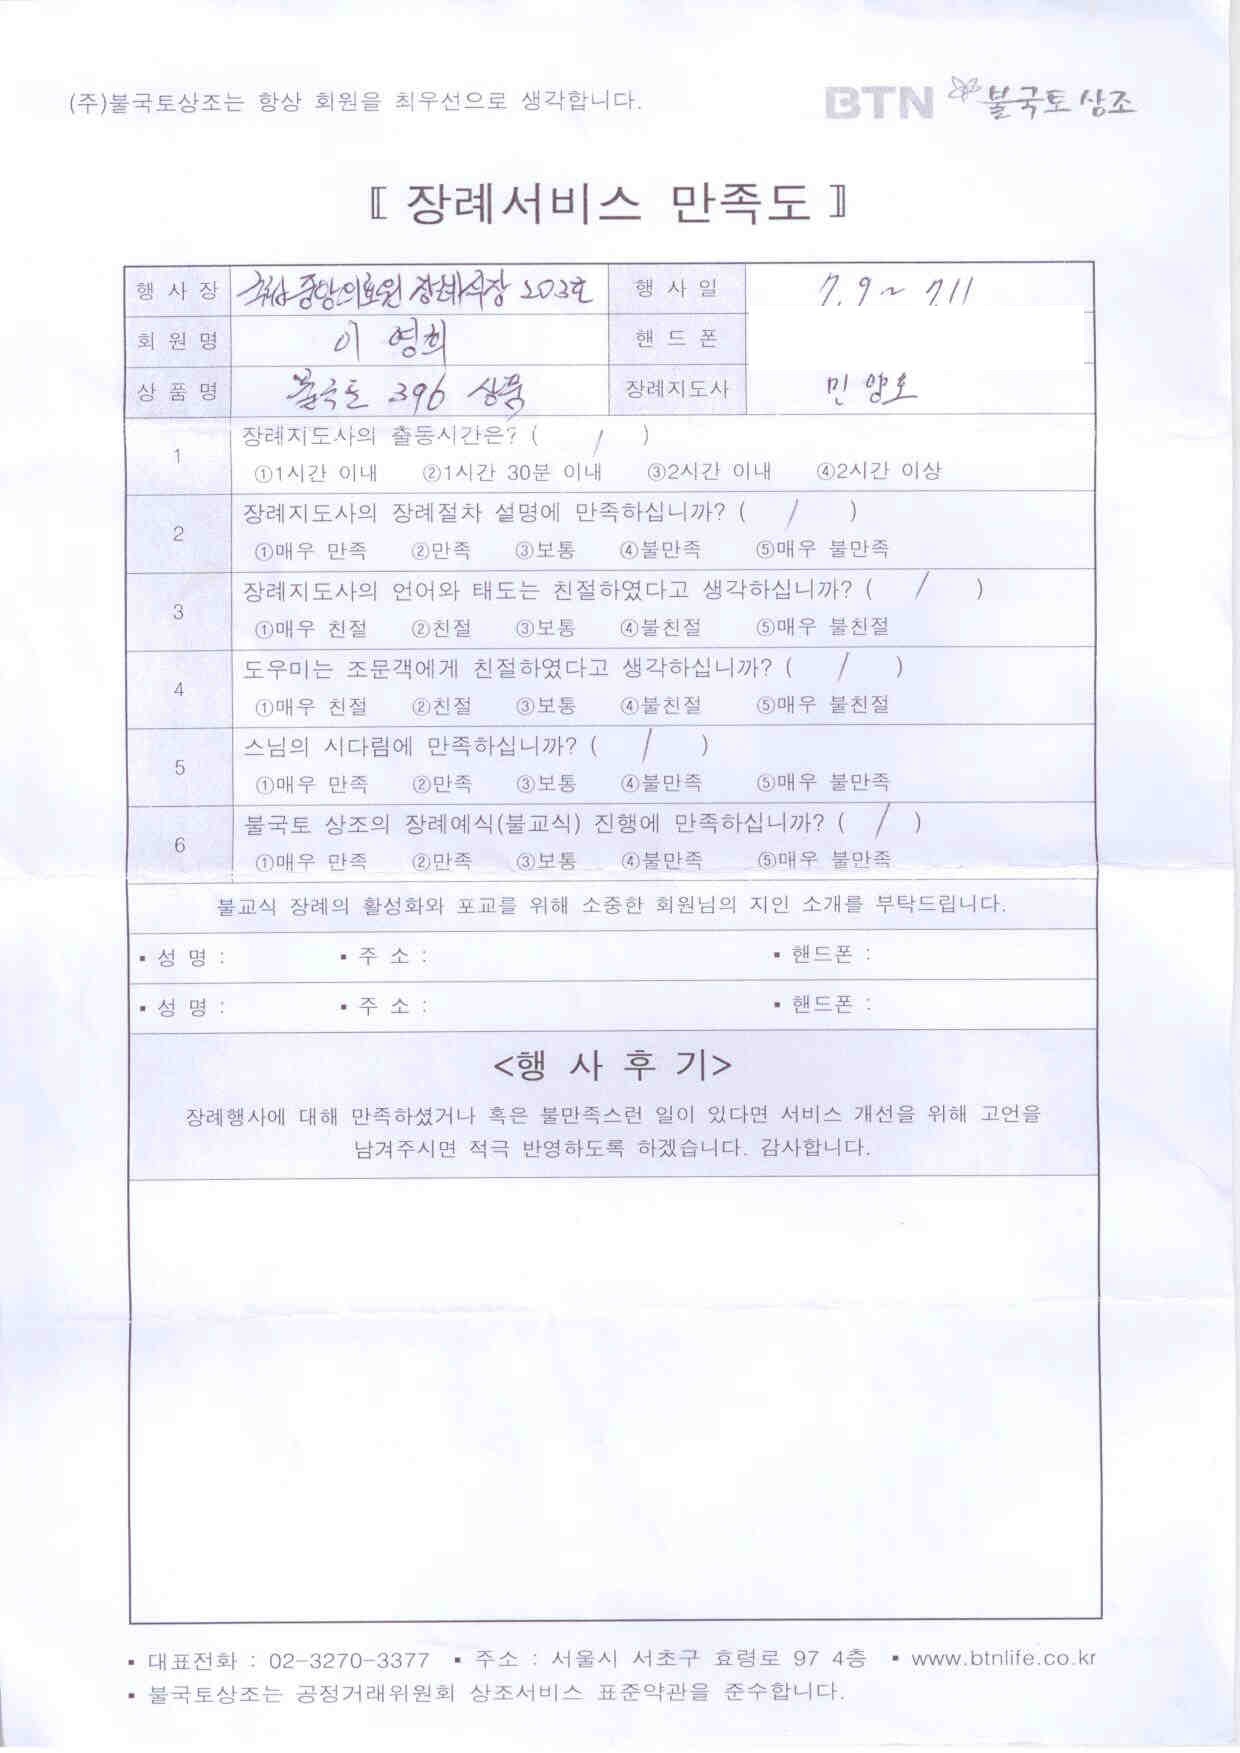 (주)불국토상조는 항상 회원을 최우선으로 생각합니다.
BTN 불국토상조
〖 장례서비스 만족도 〗
행 사 장 국립중앙의료원 장례식장 203호 행 사 일 7. 9 ~ 7.11
회 원 명 이 영희 핸 드 폰
상 품 명 불국토 396 상품 장례지도사 민 양호
1 장례지도사의 출동시간은? ( / )
①1시간 이내 ②1시간 30분 이내 ③2시간 이내 ④2시간 이상
2 장례지도사의 장례절차 설명에 만족하십니까? ( / )
①매우 만족 ②만족 ③보통 ④불만족 ⑤매우 불만족
3 장례지도사의 언어와 태도는 친절하였다고 생각하십니까? ( / )
①매우 친절 ②친절 ③보통 ④불친절 ⑤매우 불친절
4 도우미는 조문객에게 친절하였다고 생각하십니까? ( / )
①매우 친절 ②친절 ③보통 ④불친절 ⑤매우 불친절
5 스님의 시다림에 만족하십니까? ( / )
①매우 만족 ②만족 ③보통 ④불만족 ⑤매우 불만족
6 불국토 상조의 장례예식(불교식) 진행에 만족하십니까? ( / )
①매우 만족 ②만족 ③보통 ④불만족 ⑤매우 불만족
불교식 장례의 활성화와 포교를 위해 소중한 회원님의 지인 소개를 부탁드립니다.
▪ 성 명 : ▪ 주 소 : ▪ 핸드폰 :
▪ 성 명 : ▪ 주 소 : ▪ 핸드폰 :
<행 사 후 기>
장례행사에 대해 만족하셨거나 혹은 불만족스런 일이 있다면 서비스 개선을 위해 고언을
남겨주시면 적극 반영하도록 하겠습니다. 감사합니다.
▪ 대표전화 : 02-3270-3377 ▪ 주소 : 서울시 서초구 효령로 97 4층 ▪ www.btnlife.co.kr
▪ 불국토상조는 공정거래위원회 상조서비스 표준약관을 준수합니다.